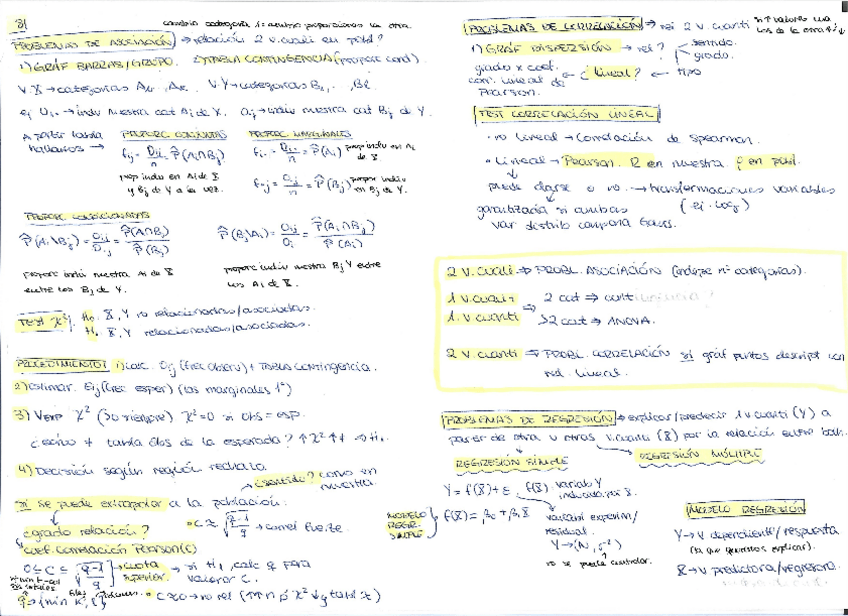 31
PROBLEMAS DE ASOCIACIÓN → relación 2 v. cuali en pobl?
1) GRÁF BARRAS/GRUPO. 2) TABLA CONTINGENCIA (proporc cond).
V. X → categorías A1, Ak. V. Y → categorías B1, Bl
A partir tabla hallamos →
PROPORC CONJUNTAS
fij = Oij/n = P̂(Ai∩Bj)
prop indiv en Ai de X y Bj de Y a la vez.
PROPORC MARGINALES
fi· = Oi·/n = P̂(Ai) prop indiv en Ai de X
f·j = O·j/n = P̂(Bj) propor indiv en Bj de Y.
PROPORC CONDICIONADAS
P̂(Ai\Bj) = Oij/O·j = P̂(A∩Bj)/P̂(Bj)
P̂(Bj\Ai) = Oij/Oi = P̂(Ai∩Bj)/P̂(Ai)
proporc indiv muestra Ai de X entre los Bj de Y.
proporc indiv muestra Bj Y entre los Ai de X.
TEST χ². H0. X, Y no relacionadas/asociadas.
H1. X, Y relacionadas/asociadas.
PROCEDIMIENTO: 1) calc. Oij (frec observ) + TABLA Contingencia.
2) estimar. Eij (frec esper) (los marginales 1º)
3) VEXP χ² (>0 siempre) χ²=0 si obs=esp.
4) Decisión según región rechazo
si se puede extrapolar a la población.
¿sentido? como en muestra.
¿grado relación?
coef. correlación PEARSON (C)
0 ≤ C ≤ √(q-1/q) → cota superior. → si H1, calc q para valorar C.
C ≈ √(q-1/q) → correl fuerte.
PROBLEMAS DE CORRELACIÓN → rel 2 v. cuanti
1) GRÁF DISPERSIÓN → rel? sentido. grado.
grado x coef. corr. lineal de Pearson. ← ¿lineal? ← tipo
TEST CORRELACIÓN LINEAL
• no lineal → Correlación de Spearman.
• Lineal → Pearson. R en muestra ρ en pobl.
puede darse o no. → transformaciones variables (ej. log)
garantizada si ambas var distrib conjunta Gauss.
2 v. cuali. ⇒ PROBL. ASOCIACIÓN (indep nº categorías).
1 v. cuali +
1. v. cuanti ⇒ 2 cat ⇒
>2 cat ⇒ ANOVA.
2 v. cuanti ⇒ PROBL. CORRELACIÓN si gráf puntos descript con rel. lineal.
PROBLEMAS DE REGRESIÓN → explicar/predecir 1 v. cuanti (Y) a partir de otra u otras v. cuanti (X) por la relación entre
REGRESIÓN SIMPLE
REGRESIÓN MÚLTIPLE
Y = f(X) + ε, f(X): variab Y indicada por X.
MODELO REGR. SIMPLE f(X) = β0 + β1X
variab experim/residual.
no se puede controlar.
MODELO REGRESIÓN
Y → v dependiente/respuesta
(la que queremos explicar).
X → v predictora/regresora.